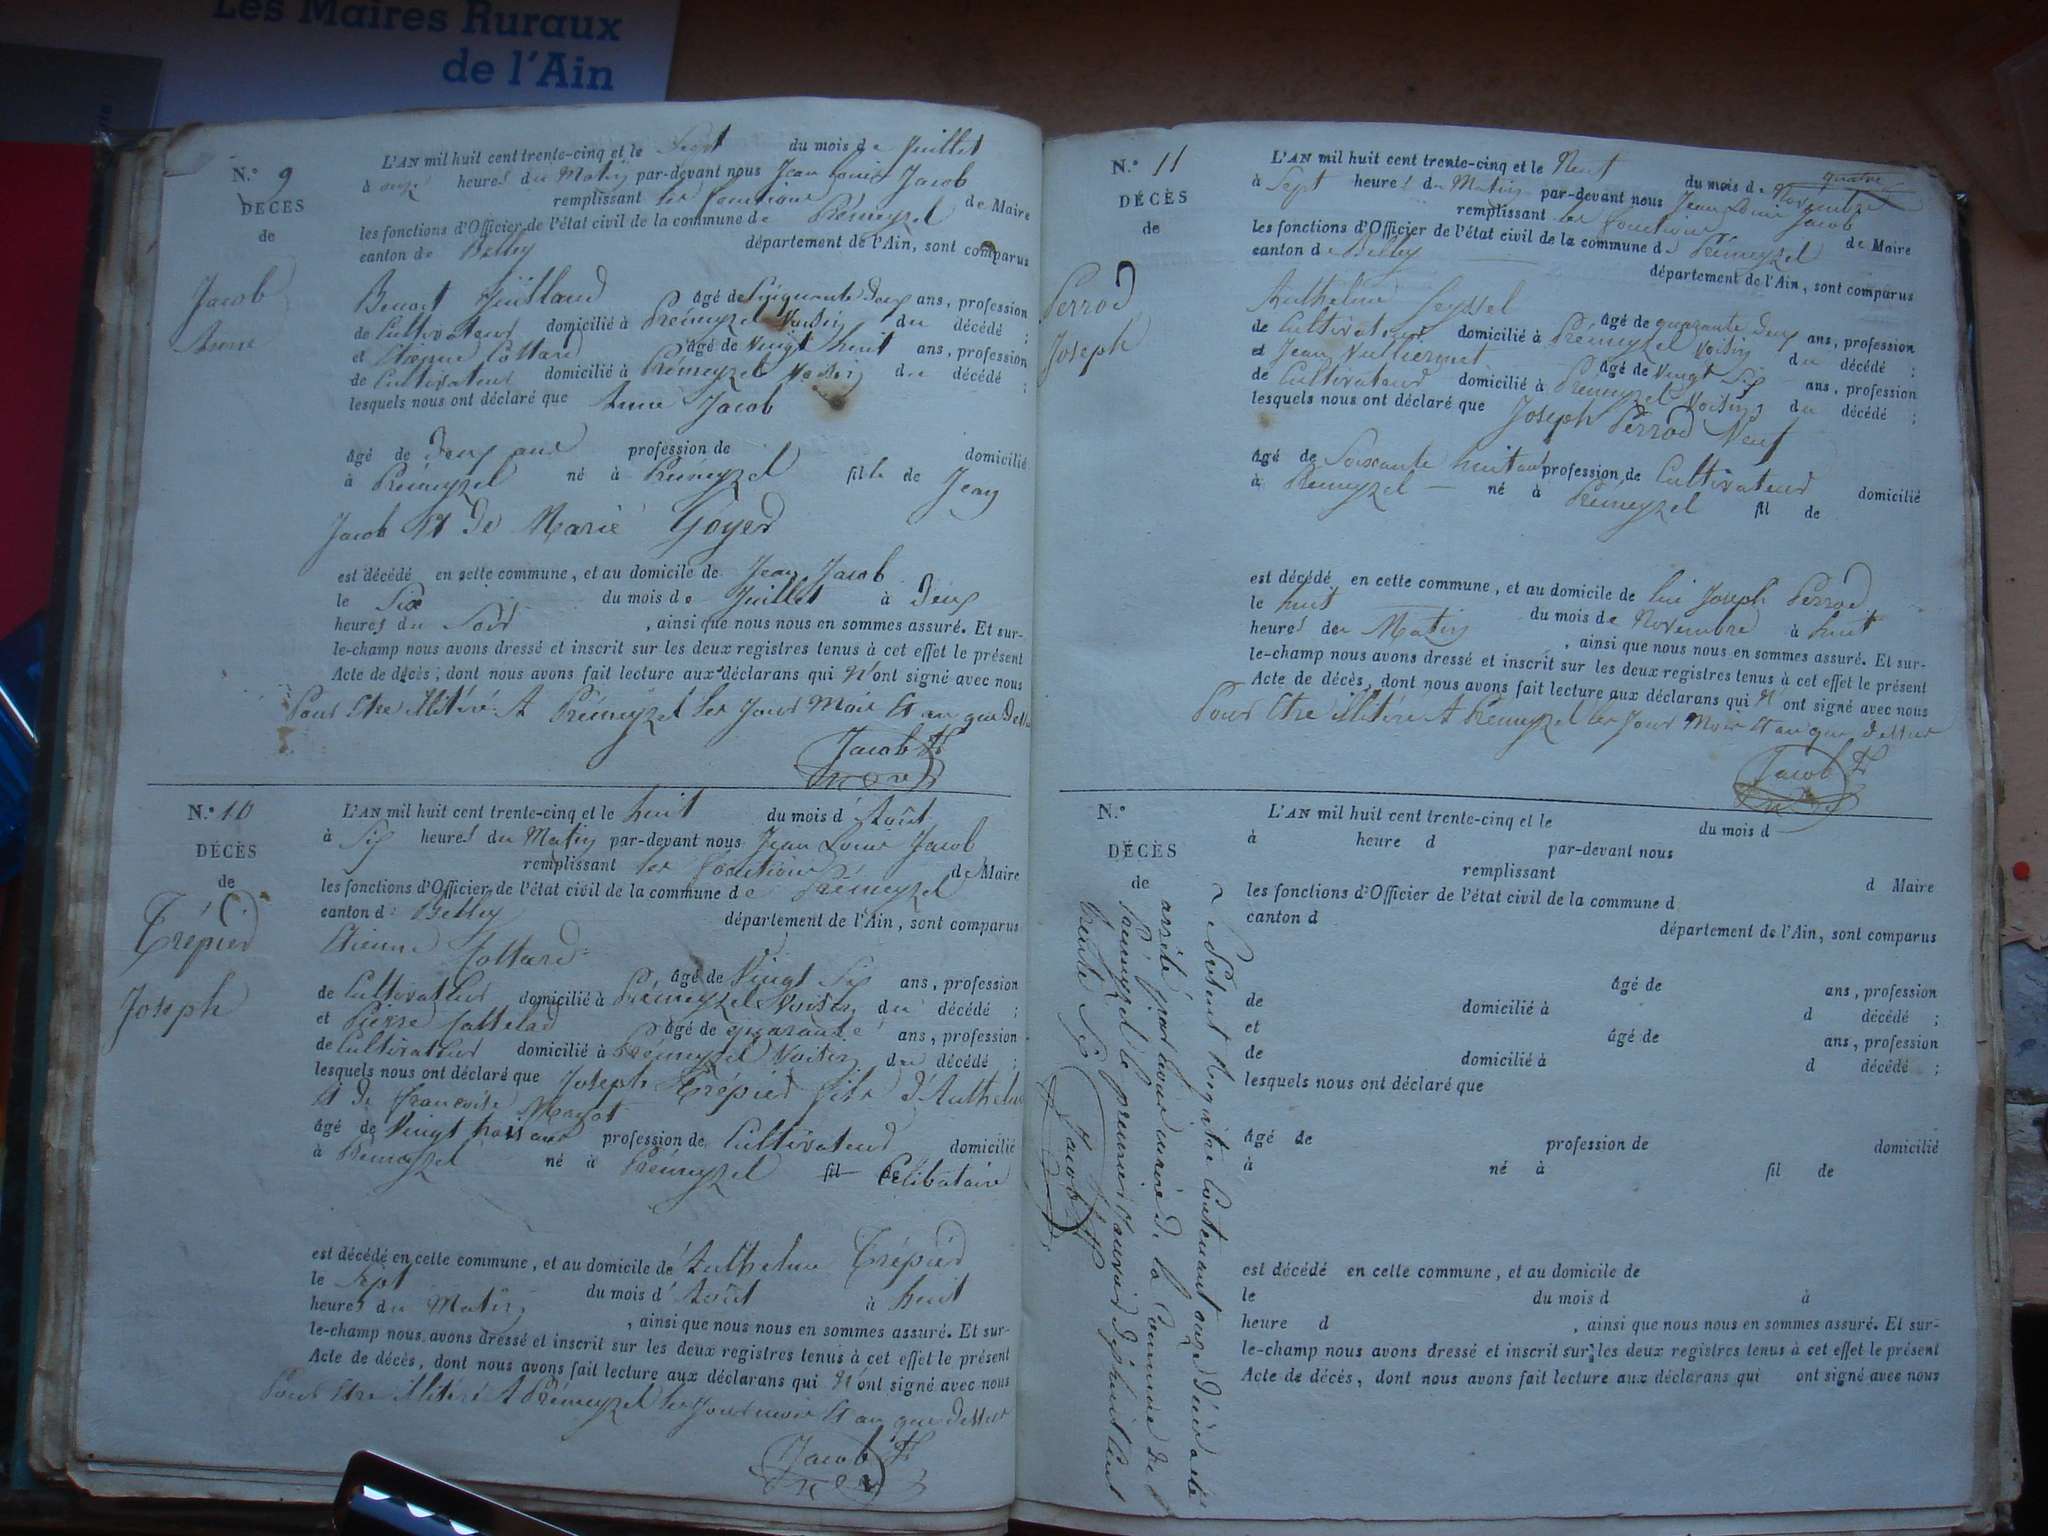 Les Maires Ruraux
de l'Ain
N.° 9
DÉCÈS
de
Jacob
Anne
L'AN mil huit cent trente-cinq et le Sept du mois de Juillet
à onze heures du Matin par-devant nous Jean Louis Jacob
remplissant les fonctions de Maire
les fonctions d'Officier de l'état civil de la commune de Prémeyzel
canton de Belley département de l'Ain, sont comparus
Benoit Juilland âgé de Cinquante deux ans, profession
de Cultivateur domicilié à Prémeyzel Voisin du décédé ;
et Etienne Cottard âgé de Vingt huit ans, profession
de Cultivateur domicilié à Prémeyzel Voisin du décédé ;
lesquels nous ont déclaré que Anne Jacob
âgé de Deux ans profession de domicilié
à Prémeyzel né à Prémeyzel fille de Jean
Jacob Et De Marie Goyer
est décédé en cette commune, et au domicile de Jean Jacob
le Six du mois de Juillet à Deux
heures du Soir , ainsi que nous nous en sommes assuré. Et sur-
le-champ nous avons dressé et inscrit sur les deux registres tenus à cet effet le présent
Acte de décès, dont nous avons fait lecture aux déclarans qui N'ont signé avec nous
Pour Etre illitéré A Prémeyzel les Jour Mois Et an que Dessus
Jacob
N.° 10
DÉCÈS
de
Trépier
Joseph
L'AN mil huit cent trente-cinq et le huit du mois d'Août
à Six heures du Matin par-devant nous Jean Louis Jacob
remplissant les fonctions de Maire
les fonctions d'Officier de l'état civil de la commune de Prémeyzel
canton d Belley département de l'Ain, sont comparus
Etienne Cottard âgé de Vingt Six ans, profession
de Cultivateur domicilié à Prémeyzel Voisin du décédé ;
et Pierre âgé de quarante ans, profession
de Cultivateur domicilié à Prémeyzel Voisin du décédé ;
lesquels nous ont déclaré que Joseph Trépier fils d'Anthelme
Et De françoise
âgé de Vingt trois ans profession de Cultivateur domicilié
à Prémeyzel né à Prémeyzel fil de Célibataire
est décédé en cette commune, et au domicile de Anthelme Trépier
le Sept du mois d'Août à huit
heures du Matin , ainsi que nous nous en sommes assuré. Et sur-
le-champ nous avons dressé et inscrit sur les deux registres tenus à cet effet le présent
Acte de décès, dont nous avons fait lecture aux déclarans qui N'ont signé avec nous
Pour Etre illitéré A Prémeyzel les Jour mois Et an que Dessus
Jacob
N.° 11
DÉCÈS
de
Perrod
Joseph
L'AN mil huit cent trente-cinq et le Neuf du mois de Novembre
à Sept heures du Matin par-devant nous Jean Louis Jacob
remplissant les fonctions de Maire
les fonctions d'Officier de l'état civil de la commune d Prémeyzel
canton de Belley département de l'Ain, sont comparus
Anthelme Seyssel âgé de quarante Deux ans, profession
de Cultivateur domicilié à Prémeyzel Voisin du décédé ;
et Jean Vulliermet âgé de Vingt Six ans, profession
de Cultivateur domicilié à Prémeyzel Voisin du décédé ;
lesquels nous ont déclaré que Joseph Perrod Veuf
âgé de Soixante huit ans profession de Cultivateur domicilié
à Prémeyzel né à Prémeyzel fil de
est décédé en cette commune, et au domicile de lui Joseph Perrod
le huit du mois de Novembre à huit
heures du Matin , ainsi que nous nous en sommes assuré. Et sur-
le-champ nous avons dressé et inscrit sur les deux registres tenus à cet effet le présent
Acte de décès, dont nous avons fait lecture aux déclarans qui N'ont signé avec nous
Pour Etre illitéré A Prémeyzel les Jour Mois Et an que Dessus
Jacob
N.°
DÉCÈS
de
Le présent Registre Contenant onze Décès a été
arrêté par nous maire de la Commune de
Prémeyzel le premier Janvier Dixhuit Cent
trente Six
Jacob
L'AN mil huit cent trente-cinq et le du mois d
à heure d par-devant nous
remplissant d Maire
les fonctions d'Officier de l'état civil de la commune d
canton d département de l'Ain, sont comparus
âgé de ans, profession
de domicilié à d décédé ;
et âgé de ans, profession
de domicilié à d décédé ;
lesquels nous ont déclaré que
âgé de profession de domicilié
à né à fil de
est décédé en cette commune, et au domicile de
le du mois d à
heure d , ainsi que nous nous en sommes assuré. Et sur-
le-champ nous avons dressé et inscrit sur les deux registres tenus à cet effet le présent
Acte de décès, dont nous avons fait lecture aux déclarans qui ont signé avec nous